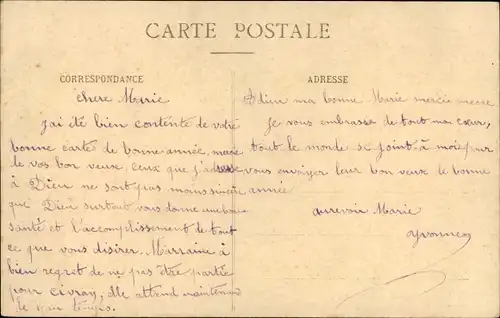 CARTE POSTALE
CORRESPONDANCE
chere Marie
jai été bien contente de votre
bonne carte de bonne année, mais
de vos bon veux, ceux que j'adresse
à Dieu ne sont pas moins sincère
que Dieu surtout vous donne une bonne
santé et l'accomplissement de tout
ce que vous disirer. Marraine à
bien regret de ne pas être partie
pour civray, elle attend maintenant
le temps.
ADRESSE
Adieu ma bonne Marie mercie encore
je vous embrasse de tout mon cœur,
tout le monde se joint à moie pour
vous envoyer leur bon veux le bonne
année
aurevoir Marie
Yvonne